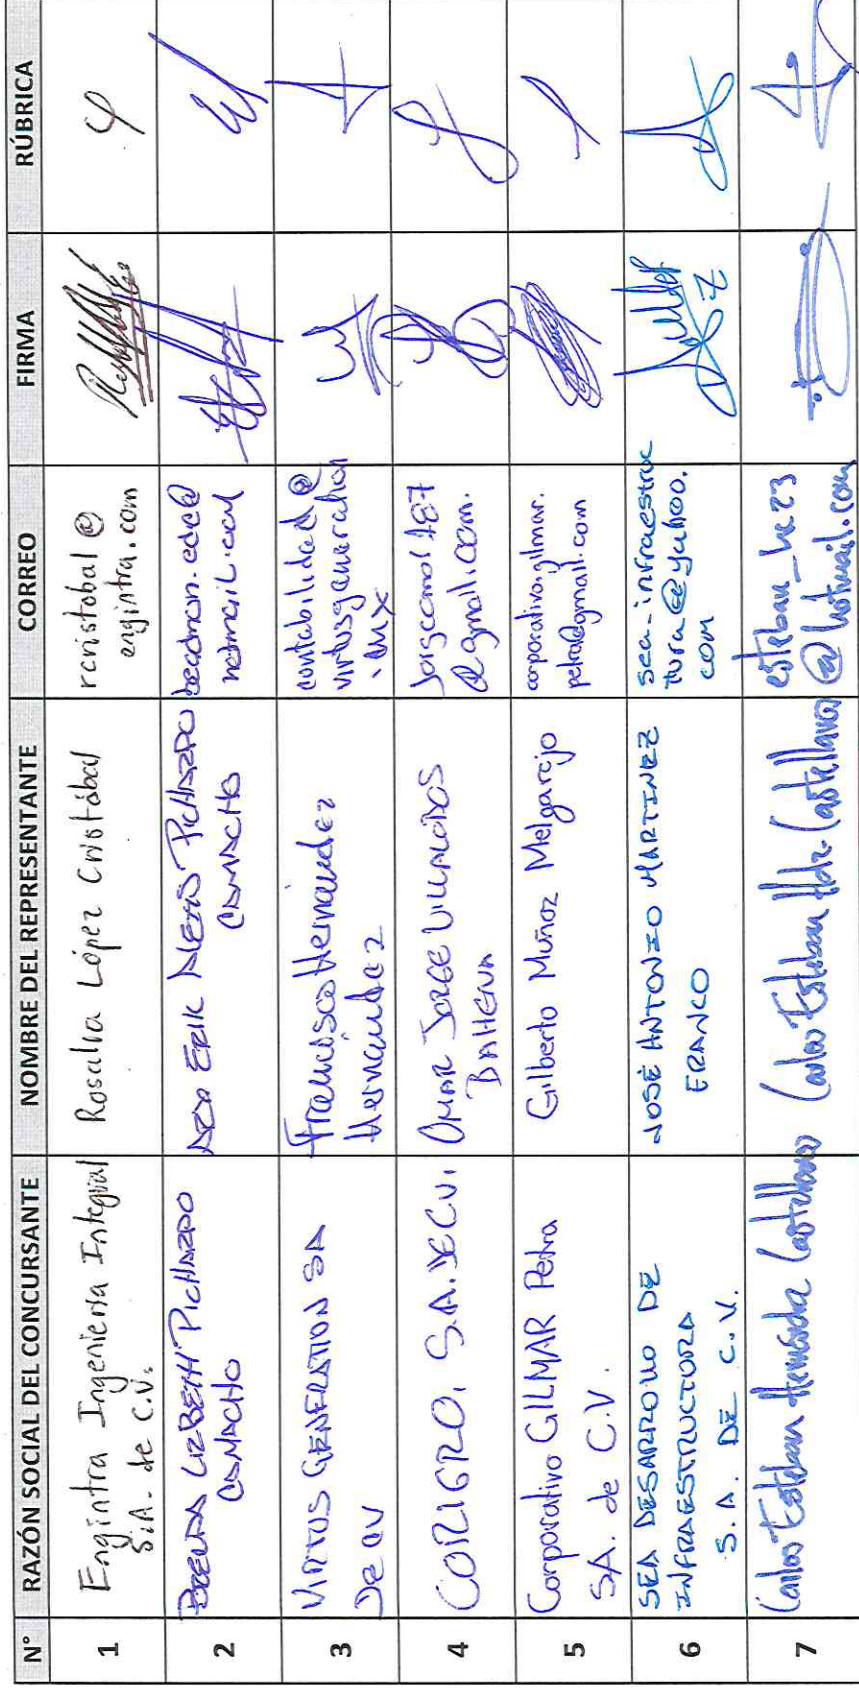 N° RAZÓN SOCIAL DEL CONCURSANTE NOMBRE DEL REPRESENTANTE CORREO FIRMA RÚBRICA
1
Engintra Ingeniería Integral
S.A. de C.V.
Rosalia López Cristóbal
rcristobal@
engintra.com
2
LIZBETH PICHARDO
CAMACHO
ERIK PICHARDO
CAMACHO
3
VIRTUS GENERATION SA
De CV
Francisco Hernández
Hernández
contabilidad@
virtusgeneration
.mx
4
CORIGRO, S.A. DE C.V.
OMAR JORGE VILLALOBOS
BAHENA
@gmail.com.
5
Corporativo GILMAR Petra
SA. de C.V.
Gilberto Muñoz Melgarejo
corporativo.gilmar.
petra@gmail.com
6
SEA DESARROLLO DE
INFRAESTRUCTURA
S.A. DE C.V.
JOSÉ ANTONIO MARTINEZ
FRANCO
sea-infraestruc
tura@yahoo.
com
7
Carlos Esteban Hernández Castellanos
Carlos Esteban Hdz. Castellanos
esteban_hc23
@hotmail.com